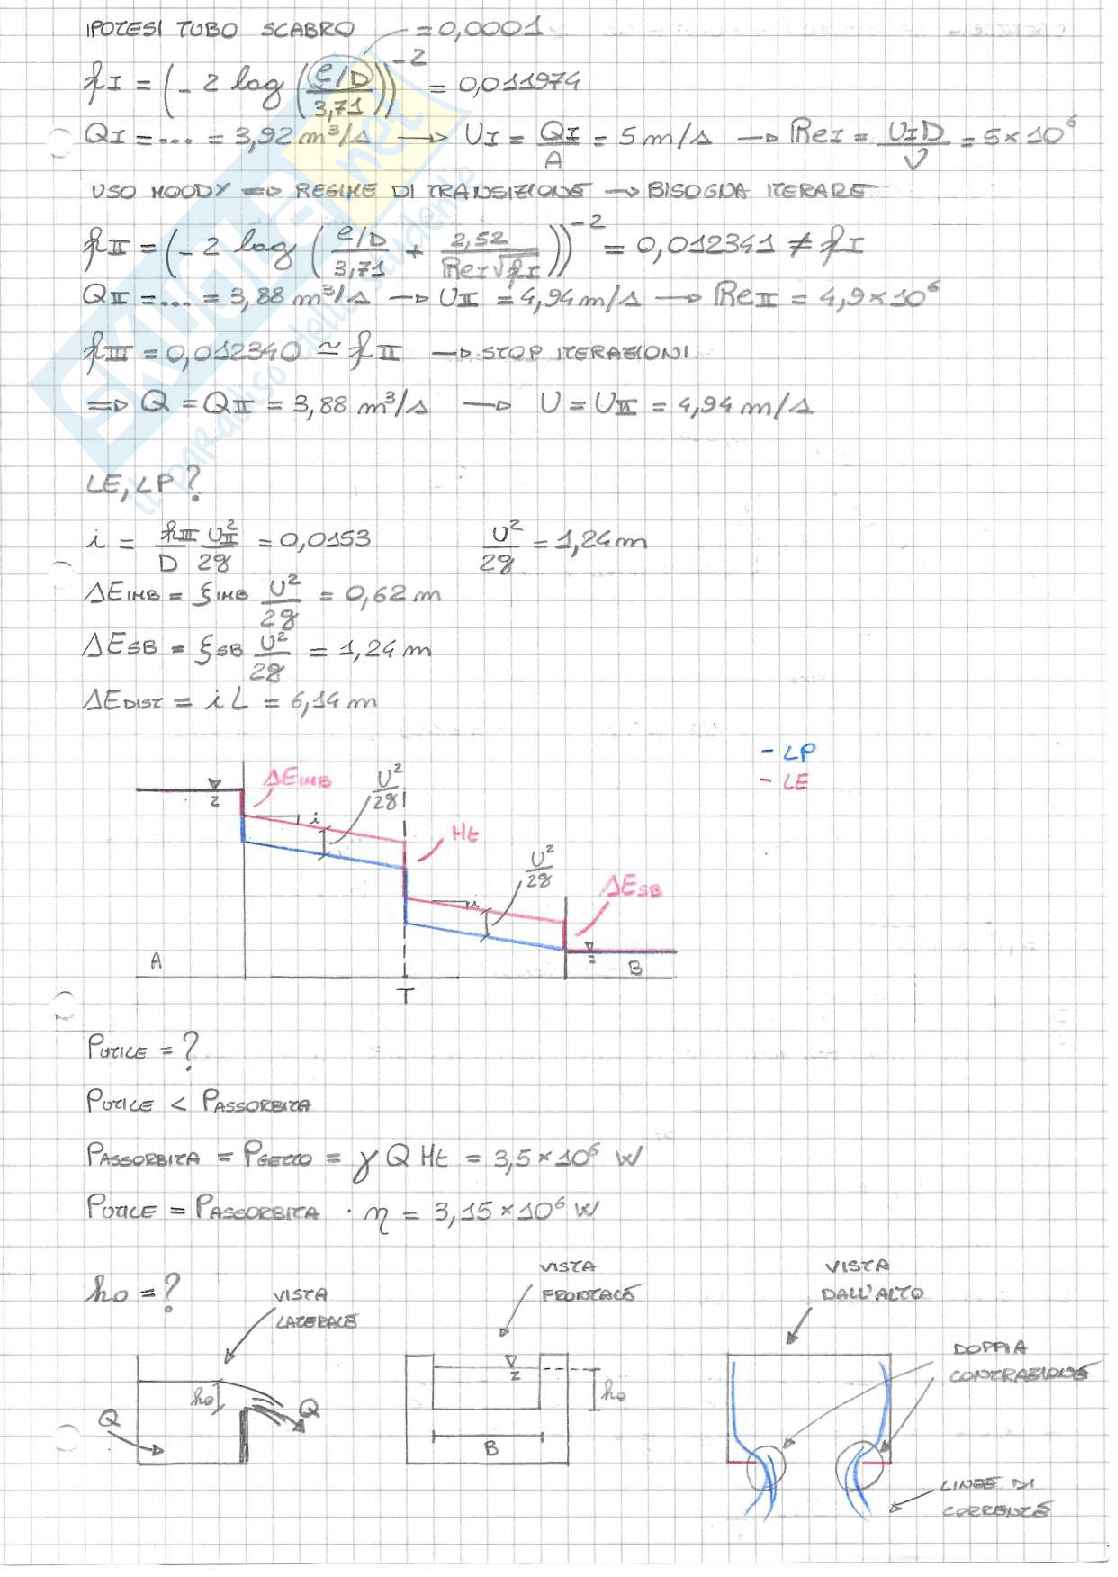 IPOTESI TUBO SCABRO = 0,0001
fI = (-2 log ((e/D)/3,71))^-2 = 0,011974
QI = ... = 3,92 m³/s → UI = QI/A = 5 m/s → ReI = UID/ν = 5×10⁶
USO MOODY ⇒ REGIME DI TRANSIZIONE → BISOGNA ITERARE
fII = (-2 log ((e/D)/3,71 + 2,52/(ReI√fI)))^-2 = 0,012341 ≠ fI
QII = ... = 3,88 m³/s → UII = 4,94 m/s → ReII = 4,9×10⁶
fIII = 0,012340 ≃ fII → STOP ITERAZIONI
⇒ Q = QII = 3,88 m³/s → U = UII = 4,94 m/s
LE, LP?
i = fII/D UII²/2g = 0,0153 U²/2g = 1,24 m
ΔEIMB = ξIMB U²/2g = 0,62 m
ΔESB = ξSB U²/2g = 1,24 m
ΔEDIST = iL = 6,14 m
- LP
- LE
ΔEIMB
U²/2g
i
Ht
U²/2g
i
ΔESB
A
B
T
PUTILE = ?
PUTILE < PASSORBITA
PASSORBITA = PGETTO = γ Q Ht = 3,5×10⁶ W
PUTILE = PASSORBITA · η = 3,15×10⁶ W
h₀ = ?
VISTA
LATERALE
VISTA
FRONTALE
VISTA
DALL'ALTO
DOPPIA
CONTRAZIONE
h₀
Q
Q
h₀
B
LINEE DI
CORRENTE
SKUOLA.net
il paradiso dello studente